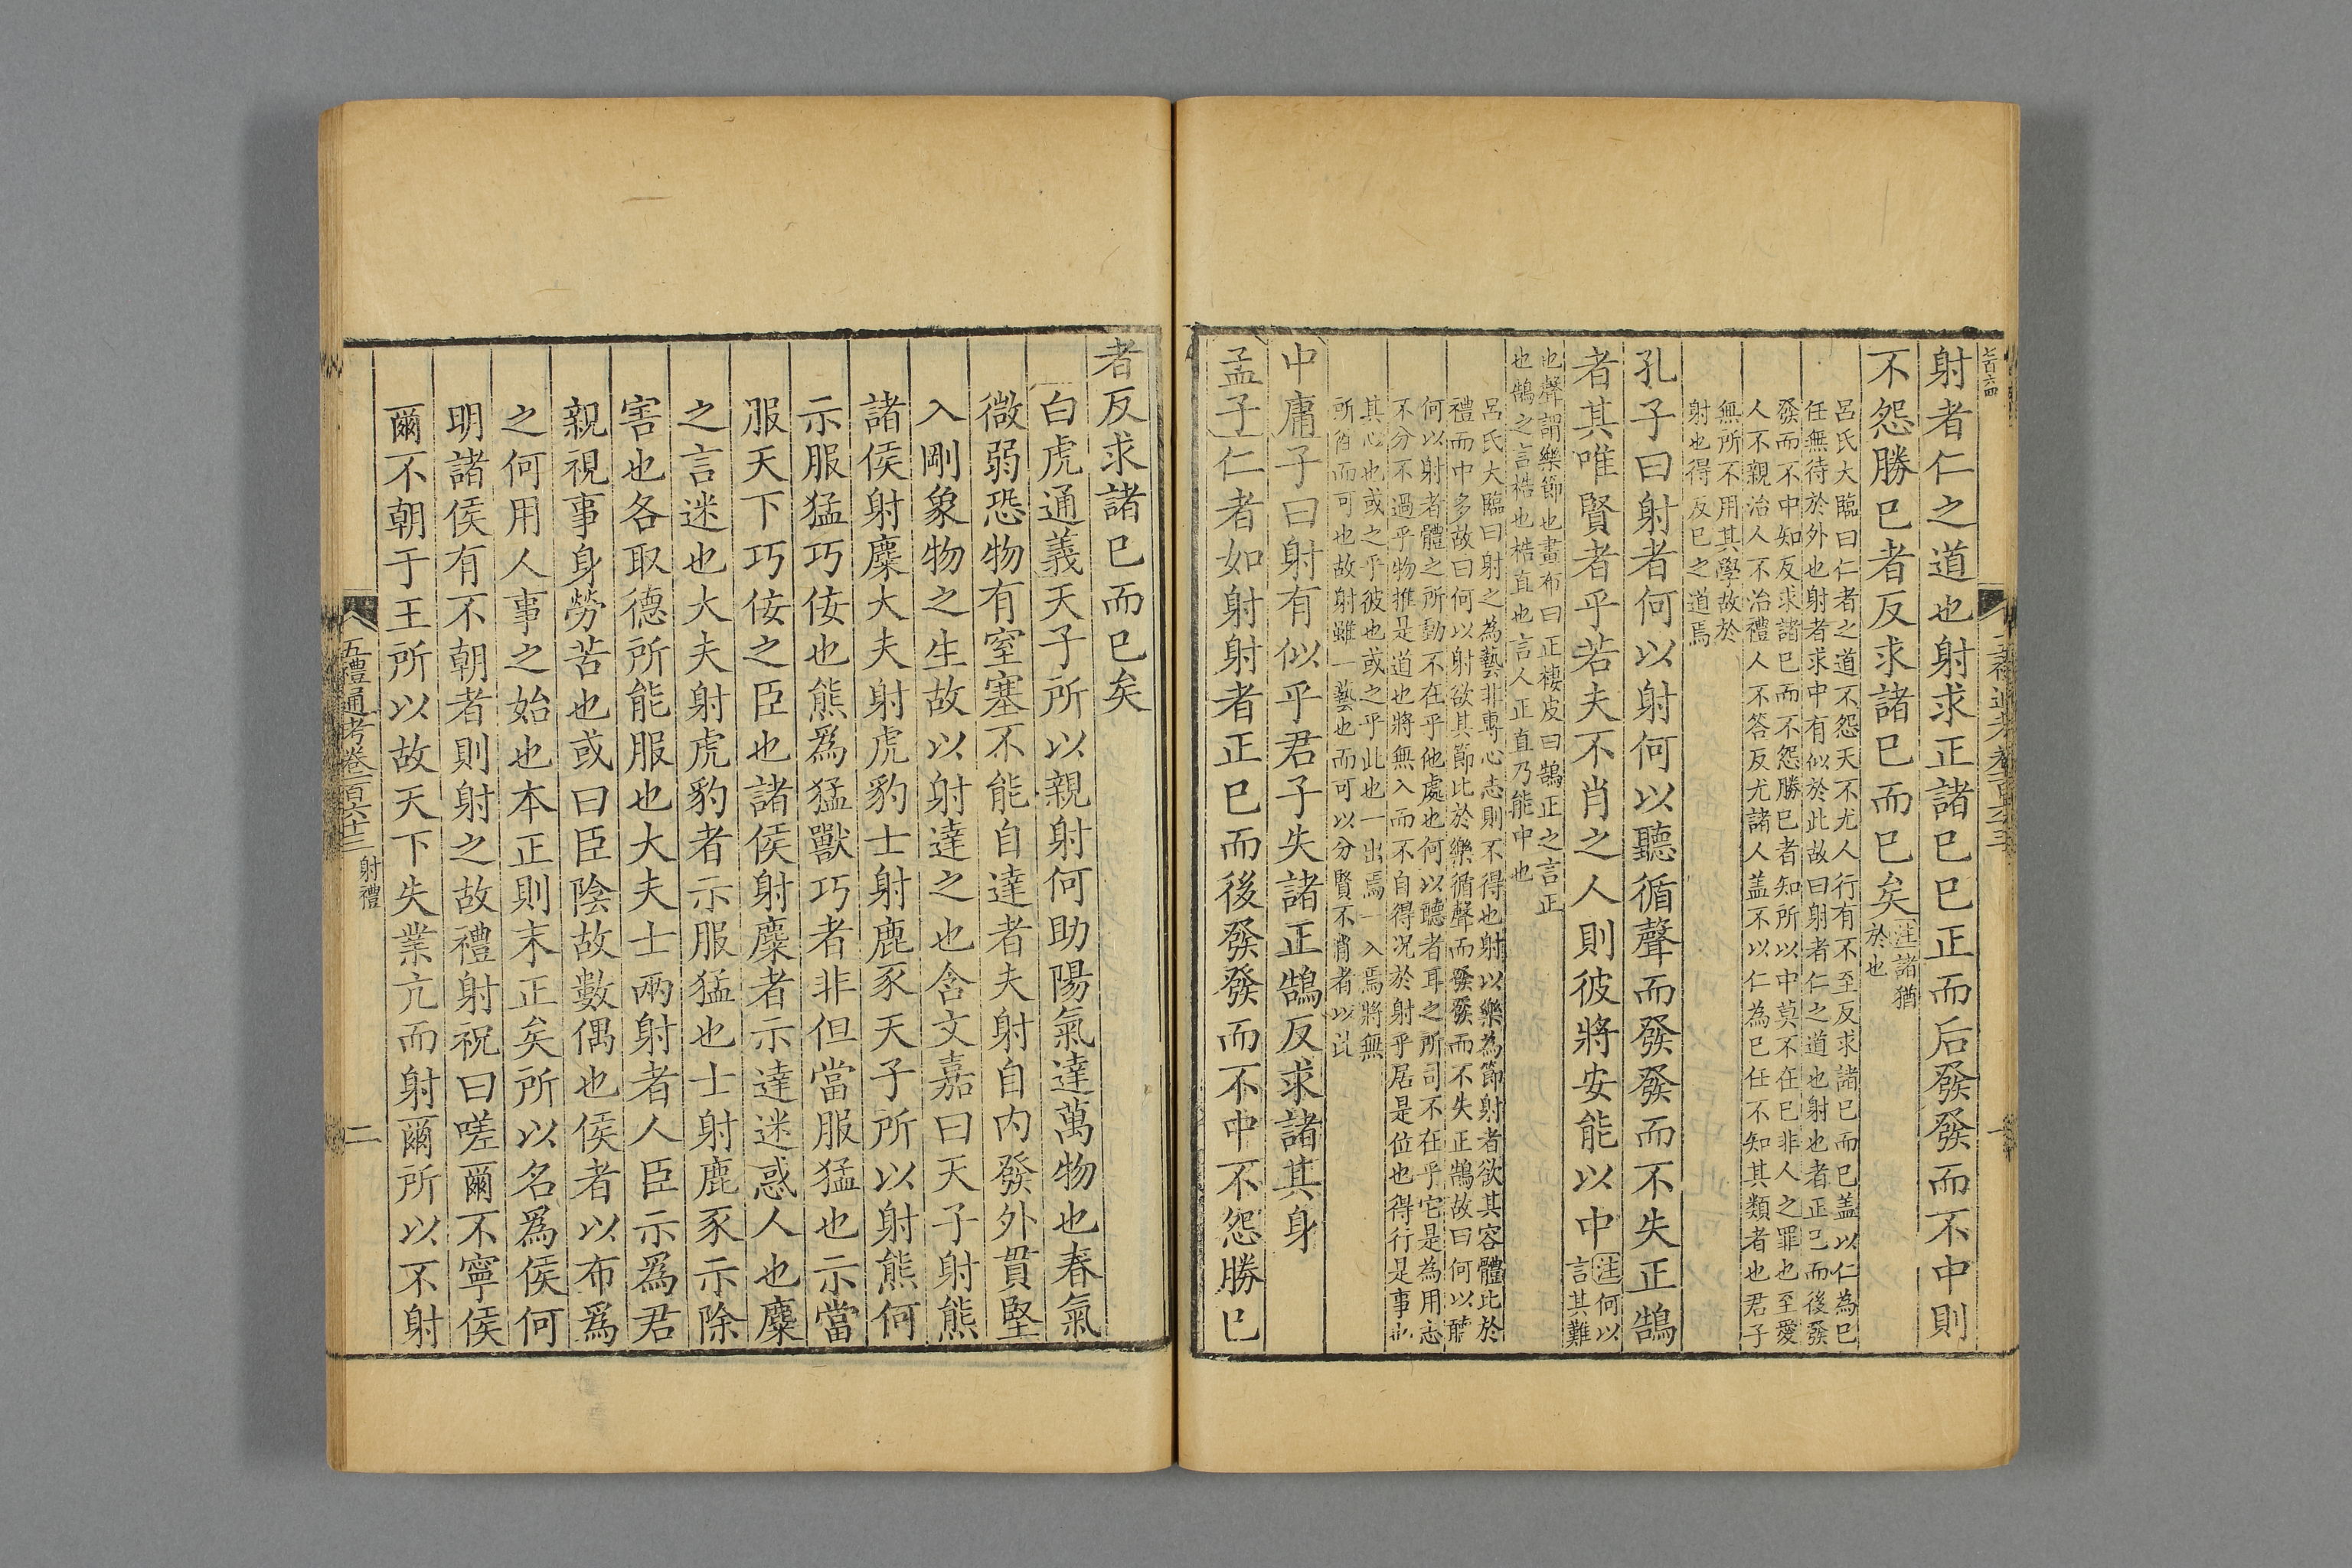 射者仁之道也射求正諸已已正而后發發而不中則
不怨勝已者反求諸已而已矣注諸猶
於也
呂氏大臨曰仁者之道不怨天不尤人行有不至反求諸已而已盖以仁為已
任無待於外也射者求中有似於此故曰射者仁之道也射也者正已而後發
發而不中知反求諸已而不怨勝已者知所以中莫不在已非人之罪也至愛
人不親治人不治禮人不答反尤諸人盖不以仁為已任不知其類者也君子
無所不用其學故於
射也得反已之道焉
孔子曰射者何以射何以聽循聲而發發而不失正鵠
者其唯賢者乎若夫不肖之人則彼將安能以中注何以
言其難
也聲謂樂節也畫布曰正棲皮曰鵠正之言正
也鵠之言梏也梏直也言人正直乃能中也
呂氏大臨曰射之為藝非專心志則不得也射以樂為節射者欲其容體比於
禮而中多故曰何以射欲其節比於樂循聲而發發而不失正鵠故曰何以聽
何以射者體之所動不在乎他處也何以聽者耳之所司不在乎它是為用志
不分不過乎物推是道也將無入而不自得况於射乎居是位也得行是事
其心也或之乎彼也或之乎此也一出焉一入焉將無
所而可也故射雖一藝也而可以分賢不肖者以此
中庸子曰射有似乎君子失諸正鵠反求諸其身
孟子仁者如射射者正已而後發發而不中不怨勝已
者反求諸已而已矣
白虎通義天子所以親射何助陽氣達萬物也春氣
微弱恐物有窒塞不能自達者夫射自内發外貫堅
入剛象物之生故以射達之也含文嘉曰天子射熊
諸侯射麋大夫射虎豹士射鹿豕天子所以射熊何
示服猛巧佞也熊爲猛獸巧者非但當服猛也示當
服天下巧佞之臣也諸侯射麋者示達迷惑人也麋
之言迷也大夫射虎豹者示服猛也士射鹿豕示除
害也各取德所能服也大夫士兩射者人臣示爲君
親視事身勞苦也或曰臣陰故數偶也侯者以布爲
之何用人事之始也本正則末正矣所以名爲侯何
明諸侯有不朝者則射之故禮射祝曰嗟爾不寧侯
爾不朝于王所以故天下失業亢而射爾所以不射
五禮通考卷一百六十三 射禮 二